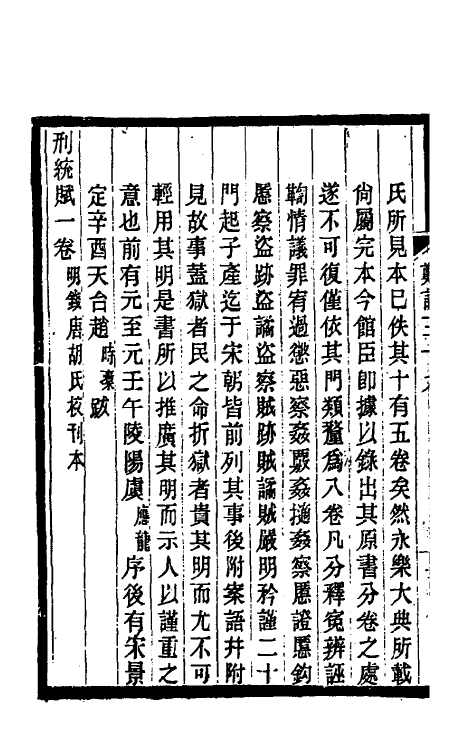 氏所見本已佚其十有五卷矣然永樂大典所載
尙屬完本今館臣卽據以錄出其原書分卷之處
遂不可復僅依其門類釐爲八卷凡分釋寃辨誣
鞫情議罪宥過懲惡察姦覈姦擿姦察慝證慝鈎
慝察盜跡盜譎盜察賊跡賊譎賊嚴明矜謹二十
門起子產迄于宋朝皆前列其事後附案語幷附
見故事蓋獄者民之命折獄者貴其明而尤不可
輕用其明是書所以推廣其明而示人以謹重之
意也前有元至元壬午陵陽虞應龍序後有宋景
定辛酉天台趙時橐跋
刑統賦一卷明錢唐胡氏校刊本